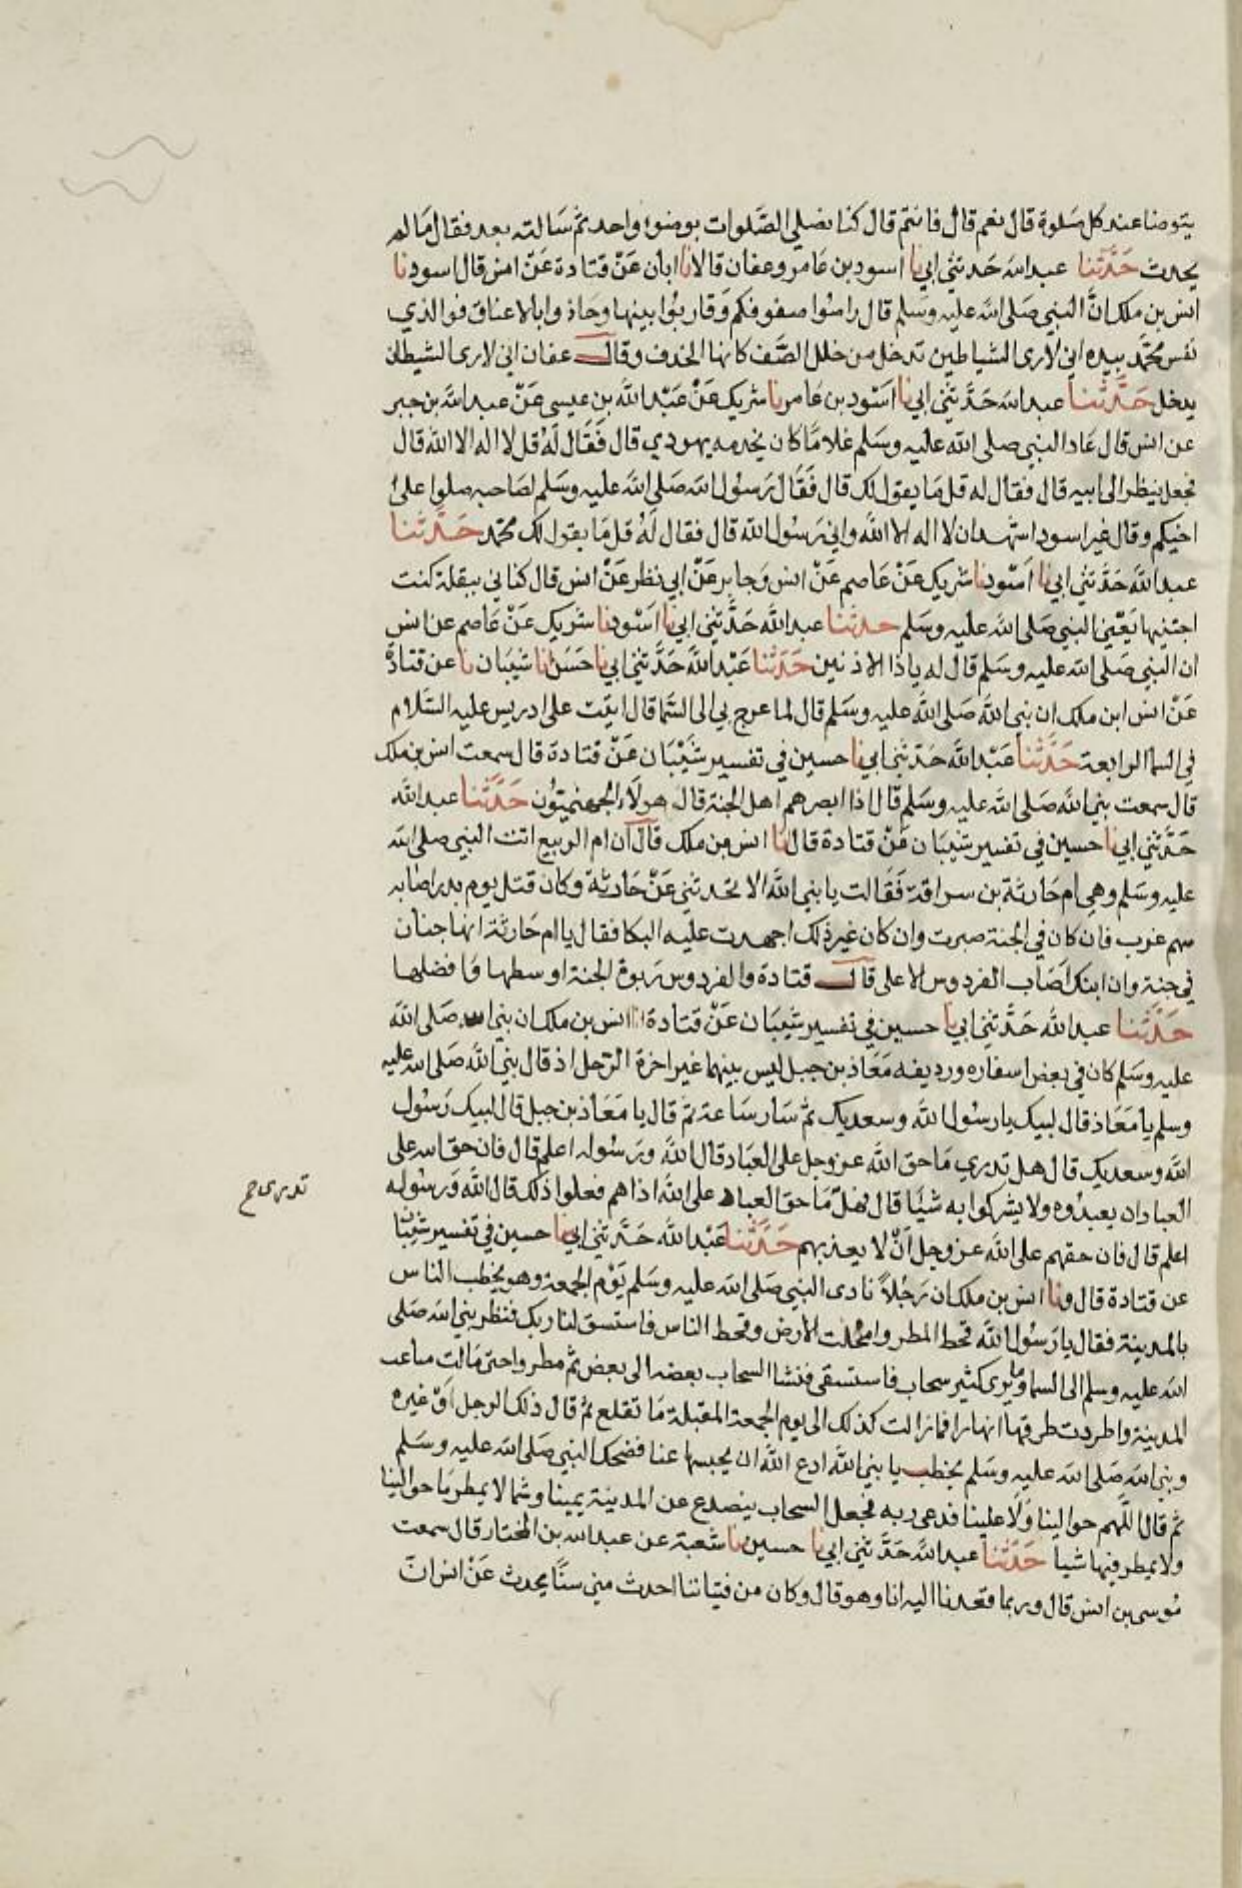 يتوضا عند كل صلوة قال نعم قال فانتم قال كنا نصلي الصلوات بوضوا واحد ثم سالته بعد فقال ما لم
يحدث حدثنا عبد الله حدثني ابي نا اسود بن عامر وعفان قالا نا ابان عن قتادة عن انس قال اسود نا
انس بن ملك ان النبي صلى الله عليه وسلم قال راصوا صفوفكم وقاربوا بينها وحاذوا بالاعناق فو الذي
نفس محمد بيده اني لارى الشياطين تدخل من خلل الصف كانها الخذف وقال عفان اني لارى الشيطان
يدخل حدثنا عبد الله حدثني ابي نا اسود بن عامر نا شريك عن عبد الله بن عيسى عن عبد الله بن جبر
عن انس قال عاد النبي صلى الله عليه وسلم غلاما كان يخدمه يهودي قال فقال له قل لا اله الا الله قال
فجعل ينظر الى ابيه قال فقال له قل ما يقول لك قال فقال رسول الله صلى الله عليه وسلم لصاحبه صلوا على
اخيكم وقال غير اسود اشهد ان لا اله الا الله واني رسول الله قال فقال له قل ما يقول لك محمد حدثنا
عبد الله حدثني ابي نا اسود نا شريك عن عاصم عن انس وجابر عن ابي نظر عن انس قال كناني ببقلة كنت
اجتنيها يعني النبي صلى الله عليه وسلم حدثنا عبد الله حدثني ابي نا اسود نا شريك عن عاصم عن انس
ان النبي صلى الله عليه وسلم قال له يا ذا الاذنين حدثنا عبد الله حدثني ابي نا حسن نا شيبان نا عن قتادة
عن انس ابن ملك ان نبي الله صلى الله عليه وسلم قال لما عرج بي الى السما قال اتيت على ادريس عليه السلام
في السما الرابعة حدثنا عبد الله حدثني ابي نا حسين في تفسير شيبان عن قتادة قال سمعت انس بن ملك
قال سمعت نبي الله صلى الله عليه وسلم قال اذا ابصرهم اهل الجنة قال هولاء الجهنميون حدثنا عبد الله
حدثني ابي نا حسين في تفسير شيبان عن قتادة قال نا انس بن ملك قال ان ام الربيع اتت النبي صلى الله
عليه وسلم وهي ام حارثة بن سراقة فقالت يا نبي الله الا تحدثني عن حارثة وكان قتل يوم بدر اصابه
سهم غرب فان كان في الجنة صبرت وان كان غير ذلك اجهدت عليه البكا فقال يا ام حارثة انها جنان
في جنة وان ابنك اصاب الفردوس الاعلى قال قتادة والفردوس ربوة الجنة اوسطها وافضلها
حدثنا عبد الله حدثني ابي نا حسين في تفسير شيبان عن قتادة نا انس بن ملك ان نبي الله صلى الله
عليه وسلم كان في بعض اسفاره ورديفه معاذ بن جبل ليس بينهما غير اخرة الرحل اذ قال نبي الله صلى الله عليه
وسلم يا معاذ قال لبيك يا رسول الله وسعديك ثم سار ساعة ثم قال يا معاذ بن جبل قال لبيك رسول
الله وسعديك قال هل تدري ما حق الله عز وجل على العباد قال الله ورسوله اعلم قال فان حق الله على
العباد ان يعبدوه ولا يشركوا به شيئا قال فهل ما حق العباد على الله اذا هم فعلوا ذلك قال الله ورسوله
تدرى صح
اعلم قال فان حقهم على الله عز وجل ان لا يعذبهم حدثنا عبد الله حدثني ابي نا حسين في تفسير شيبان
عن قتادة قال ونا انس بن ملك ان رجلا نادى النبي صلى الله عليه وسلم يوم الجمعة وهو يخطب الناس
بالمدينة فقال يا رسول الله قحط المطر وامحلت الارض وقحط الناس فاستسق لنا ربك فنظر نبي الله صلى
الله عليه وسلم الى السما وما يرى كثير سحاب فاستسقى فنشا السحاب بعضه الى بعض ثم مطروا حتى سالت مثاعب
المدينة واطردت طرقها انهارا فما زالت كذلك الى يوم الجمعة المقبلة ما تقلع ثم قال ذلك الرجل او غيره
ونبي الله صلى الله عليه وسلم يخطب يا نبي الله ادع الله ان يحبسها عنا فضحك النبي صلى الله عليه وسلم
ثم قال اللهم حوالينا ولا علينا فدعى ربه فجعل السحاب يتصدع عن المدينة يمينا وشمالا يمطر ما حوالينا
ولا يمطر فيها شيا حدثنا عبد الله حدثني ابي نا حسين نا شعبة عن عبد الله بن المختار قال سمعت
موسى بن انس قال وربما قعدنا اليه انا وهو قال وكان من فتياننا احدث مني سنا يحدث عن انس ان